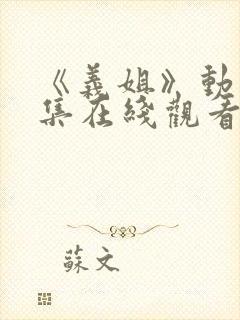 《義姐》動
集在綫觀看
蘇文